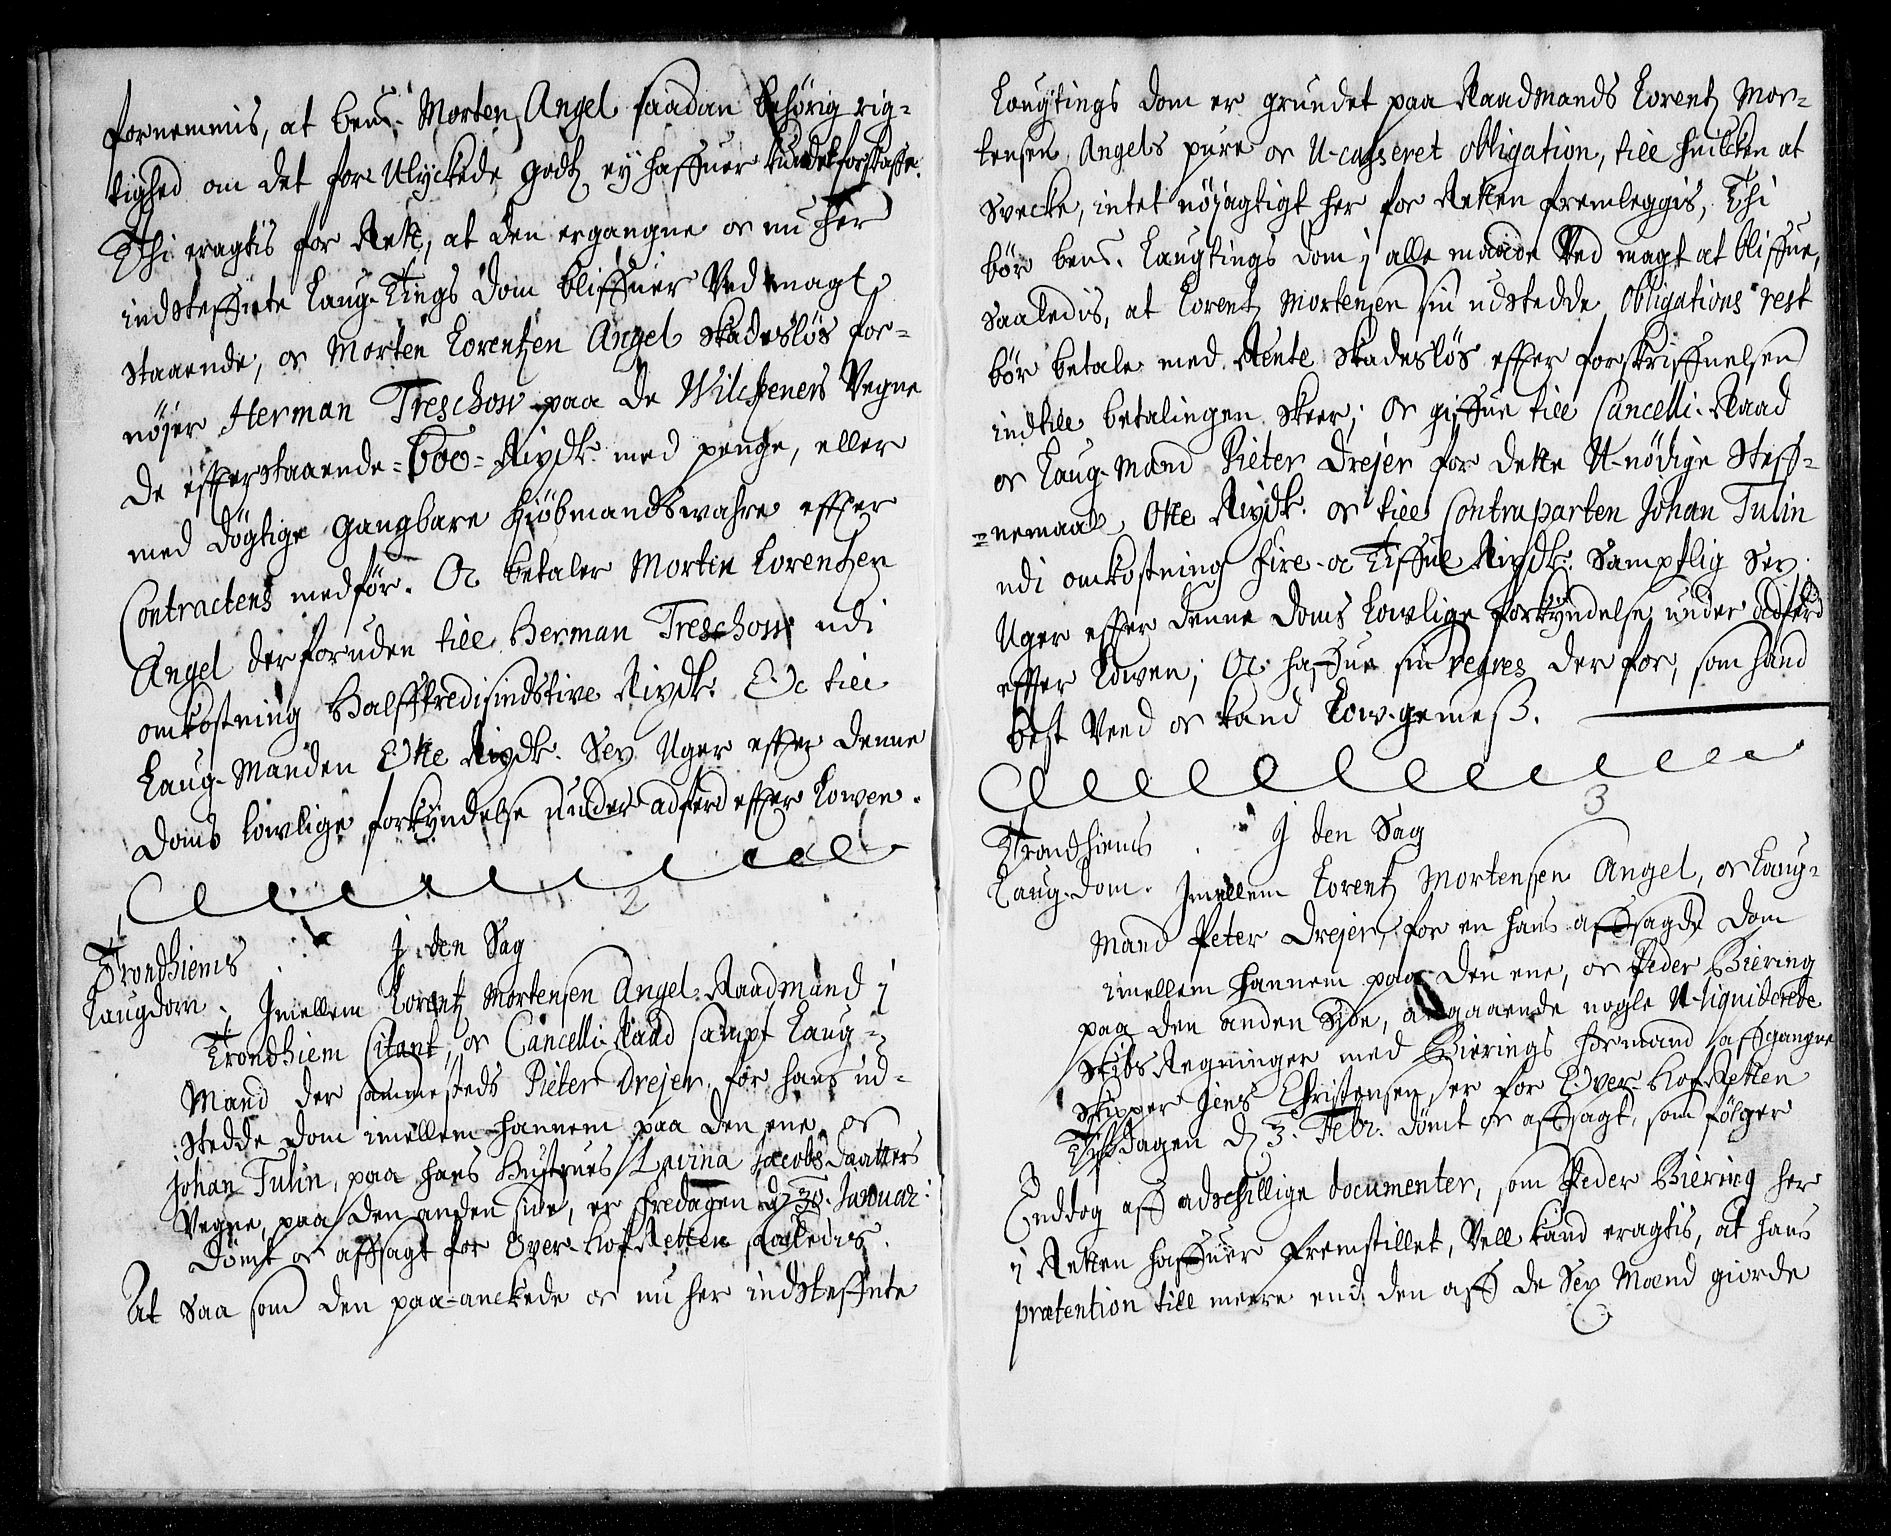 fornemmis, at bem.te Morten Angel saadan behörig rig-
tighed om det for Ulyckede godtz ey haffuer kundet forskaffe.
Thi eragtis for Rett, at den ergangne oc nu her
indsteffnte Laug-Tings Dom bliffuer Ved magt
staaende, oc Morten Lorentzen Angel skadeslös for-
nöjer Herman Treschow paa de Wilchens Vegne
de effterstaaende = 600 = Rixdlr. med penge, eller
med dögtige gangbare Kiöbmandswahre effter
Contractens medför. Oc betaler Morten Lorentzen
Angel der foruden till Herman Treschow udi
omkostning Halfftredisindstive Rixdlr. Oc till
Laug-Manden Otte Rixdlr. Sex Uger effter denne
Doms lowlige forkyndelse under adferd effter Lowen.
2
Trondhiems
Laugdom.
J den Sag
Jmellem Lorentz Mortensen Angel Raadmand i
Trondhiem Citant, oc Cancelli Raad sampt Laug-
Mand der sammesteds Pieter Drejer, for hans ud-
stedde Dom imellem hannem paa den ene, oc
Johan Tulin, paa hans Hustrues Lavina Jacobs Daatters
Vegne, paa den anden side, er Fredagen d. 30. Januar:
dömt oc affsagt for Over-Hof Retten saaledis.
At saa som den paa-anckede oc nu her indsteffnte
Laugtings dom er grundet paa Raadmands Lorentz Mor-
tensen Angels pure oc U-casseret obligation, till huilcken at
svecke, intet nöjagtigt her for Retten fremleggis, Thi
bör bem.te Laugtings dom i alle maade Ved magt at bliffue,
saaledis, at Lorentz Mortensen sin udstedde Obligations rest
bör betale med Rente skadeslös effter forskriffuelsen
indtill betalingen skeer; Oc giffue till Cancelli-Raad
oc Laug-Mand Pieter Drejer for dette U-nödige Steff-
=nemaal Otte Rixdlr. oc till Contraparten Johan Tulin
udi omkostning Fire-oc Tiffue Rixdlr. Samptlig Sex
Uger effter denne Doms Lowlige forkyndelse under adferd
effter Lowen; Oc haffue sin regres der for, som hand
best Veed oc kand Low-gemess.
3
Trondhiems
Laug-dom.
J den Sag
Jmellem Lorentz Mortensen Angel, oc Laug-
Mand Peter Drejer, for en hans affsagde Dom
imellem hannem paa den ene, oc Peder Biering
paa den anden Side, angaaende nogle U-liquiderede
Skibs Regninger med Bierings Formand affgangne
Skipper Jens Christensen, er for Over-Hof Retten
Tissdagen d. 3. Febr. dömt oc affsagt, som fölger
Enddog aff adschillige documenter, som Peder Biering her
i Retten haffuer fremstillet, Vell kand eragtis, at hans
prætention till meere end den aff de Sex Mænd giorde